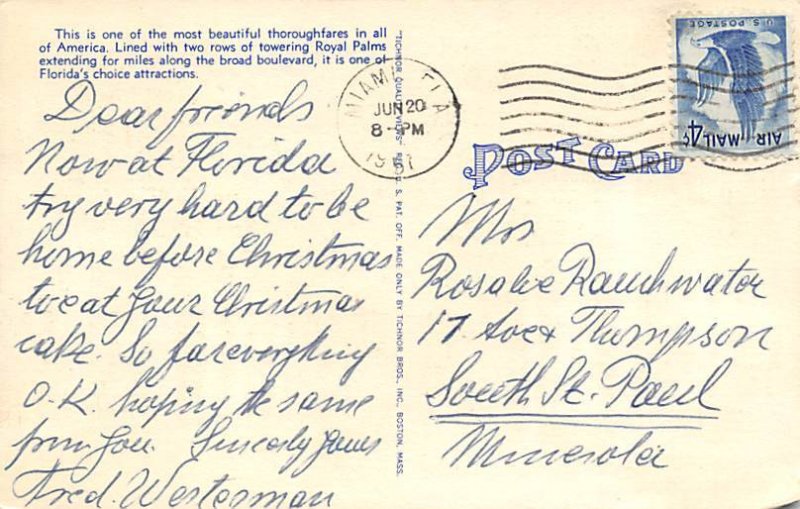 This is one of the most beautiful thoroughfares in all
of America. Lined with two rows of towering Royal Palms
extending for miles along the broad boulevard, it is one of
Florida's choice attractions.
Dear friends
Now at Florida
try very hard to be
home before Christmas
to eat Your Christmas
cake. So far everything
O.K. hoping the same
from You. Sincerly Yours
Fred. Westerman
"TICHNOR QUALITY VIEWS" REG. U. S. PAT. OFF. MADE ONLY BY TICHNOR BROS., INC., BOSTON, MASS.
MIAMI FLA
JUN 20
8 - PM
U.S. POSTAGE
AIR MAIL 4¢
POST CARD
Mrs
Rosalie Rauchwater
17. Ave & Thompson
South St. Paul
Minesota